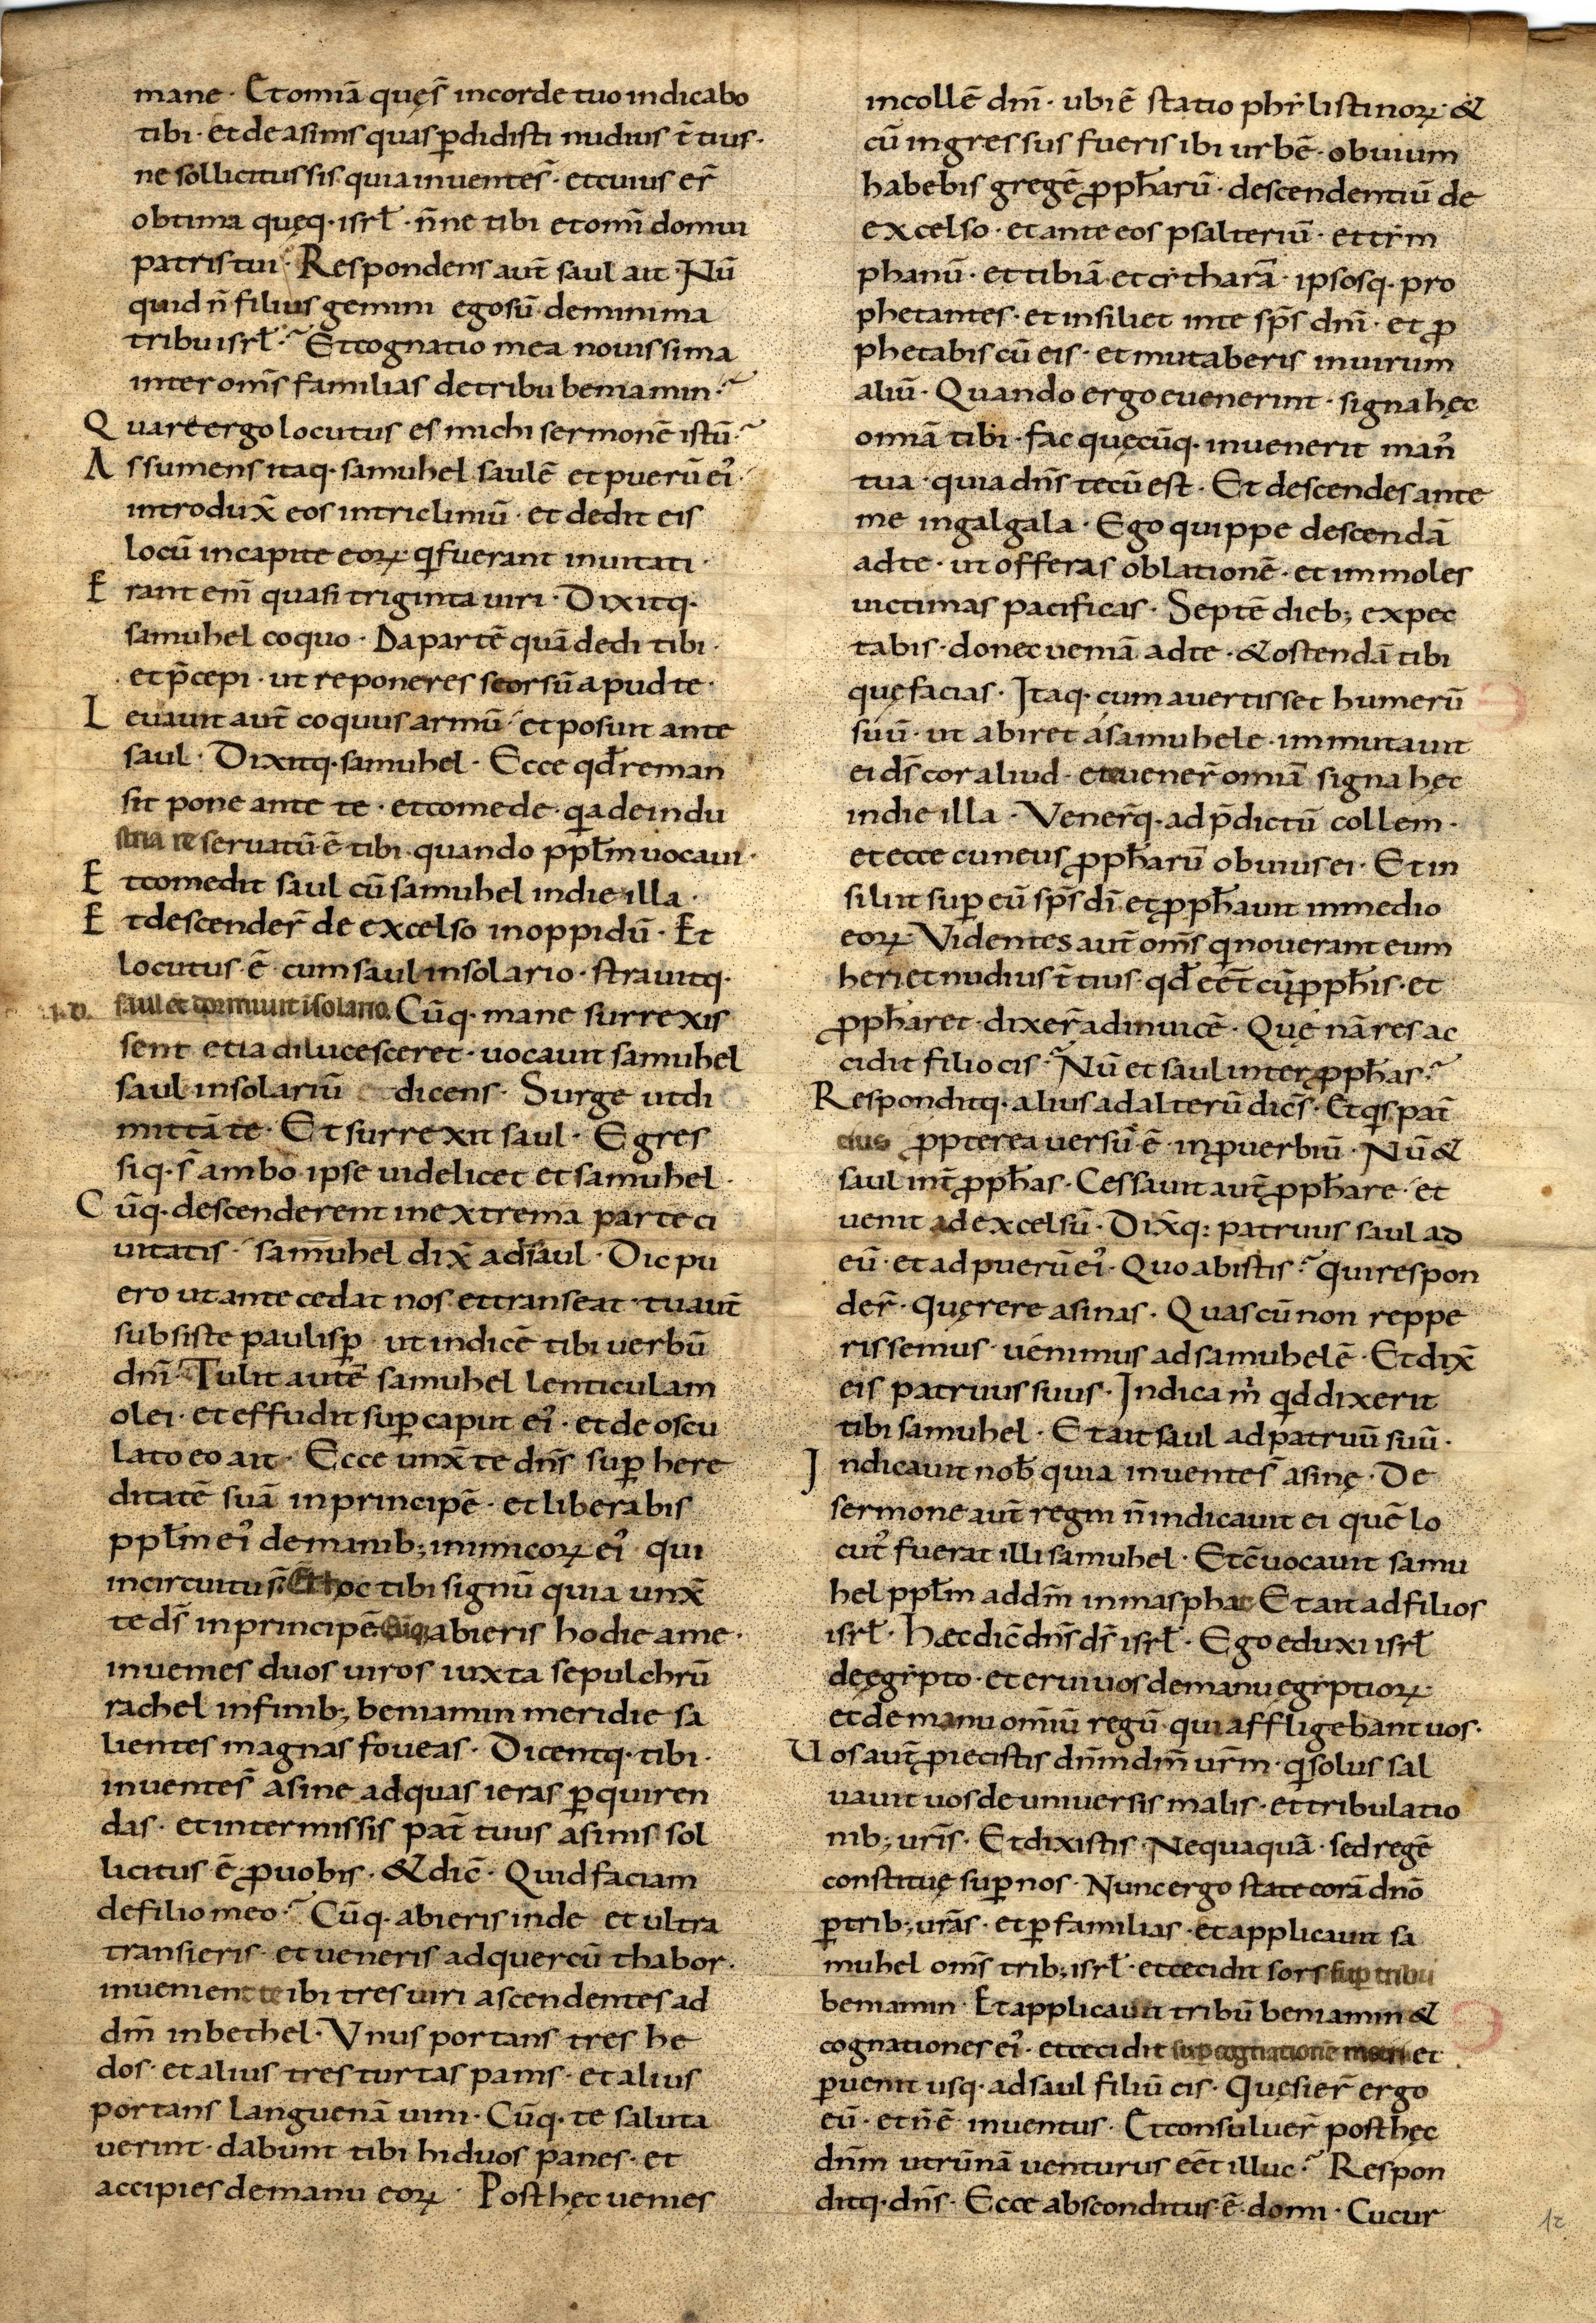 mane · Et om̄ia quęs̄ in corde tuo indicabo
tibi · et de asinis quas ꝑdidisti nudius t̄tius ·
ne sollicitus sis quia inventes̄ · et cuius er̄
obtima quęq · isrl̄ · n̄ne tibi et om̄i domui
patris tui · Respondens aut̄ saul ait · Nū
quid n̄ filius gemini ego sū de minima
tribu isrl̄ · Et cognatio mea novissima
inter om̄s familias de tribu beniamin ·
Quare ergo locutus es michi sermonē istū ·
Assumens itaq · samuhel saulē et puerū ei᾿ ·
introdux̄ eos in tricliniū · et dedit eis
locū in capite eoꝝ qi fuerant invitati ·
Erant eni̅ quasi triginta viri · Dixitq ·
samuhel coquo · Da partē quā dedi tibi ·
et p̄cepi · ut reponeres seorsū apud te ·
Levavit aut̄ coquus armū · et posuit ante
saul · Dixitq · samuhel · Ecce qđ reman
sit pone ante te · et comede · qia de indu
stria reservatū ē tibi quando ppl̄m vocavi ·
Et comedit saul cū samuhel in die illa ·
Et descender̄ de excelso in oppidū · Et
locutus ē cum saul in solario · stravitq ·
saul et dormivit ī solario. Cūq · mane surrexis
sent et ia dilucesceret · vocavit samuhel
saul in solariū dicens · Surge ut di
mittā te · Et surrexit saul · Egres
siq · s̄ ambo ipse videlicet et samuhel ·
Cūq · descenderent in extrema parte ci
vitatis · samuhel dix̄ ad saul · Dic pu
ero ut antecedat nos et transeat · tu aut̄
subsiste paulisꝑ ut indicē tibi verbū
dn̄i · Tulit autē samuhel lenticulam
olei · et effudit suꝑ caput ei᾿ · et deoscu
lato eo ait · Ecce unx̄ te dn̄s suꝑ here
ditatē suā in principē · et liberabis
ppl̄m ei᾿ de manib; inimicoꝝ ei᾿ qui
in circuitu s̄ · Et hoc tibi signū quia unx̄
te ds̄ in principē Cūq abieris hodie a me ·
invenies duos viros iuxta sepulchrū
rachel in finib; beniamin meridie sa
lientes magnas foveas · Dicentq · tibi ·
inventes̄ asine ad quas ieras ꝑquiren
das · et intermissis pat̄ tuus asinis sol
licitus ē ꝓ vobis · & dic̄ · Quid faciam
de filio meo · Cūq · abieris inde et ultra
transieris · et veneris ad quercū thabor ·
invenient te ibi tres viri ascendentes ad
dm̄ in bethel · Vnus portans tres he
dos · et alius tres turtas panis · et alius
portans languenā vini · Cūq · te saluta
verint · dabunt tibi hi duos panes · et
accipies de manu eoꝝ · Post hęc venies
in collē dn̄i · ubi ē statio phylistinoꝝ · &
cū ingressus fueris ibi urbē · obvium
habebis gregē ꝓph̄arū · descendentiū de
excelso · et ante eos psalteriū · et tym
phanū · et tibiā et cytharā · ipsosq · pro
phetantes · et insiliet in te sp̄s dn̄i · et ꝓ
phetabis cū eis · et mutaberis in virum
aliū · Quando ergo evenerint · signa hęc
om̄ia tibi · fac quęcūq · invenerit man᾿
tua · quia dn̄s tecū est · Et descendes ante
me in galgala · Ego quippe descendā
ad te · ut offeras oblationē · et immoles
victimas pacificas · Septē dieb; expec
tabis · donec veniā ad te · & ostendā tibi
quę facias · Itaq · cum avertisset humerū
suū · ut abiret a samuhele · immutavit
ei ds̄ cor aliud · et vener̄ om̄ia signa hęc
in die illa · Vener̄q · ad p̄dictū collem ·
et ecce cuneus ꝓph̄arū obvius ei · Et in
siluit suꝑ eū sp̄s dī et ꝓph̄avit in medio
eoꝝ · Videntes aut̄ om̄s qi noverant eum
heri et nudius t̄tius · qđ eēt cū ꝓph̄is · et
ꝓph̄aret · dixer̄ ad invicē · Quę nā res ac
cidit filio cis · Nū et saul inter ꝓph̄as ·
Responditq · alius ad alterū dic̄s · Et qis pat̄
eius ꝓpterea versū ē in ꝓverbiū · Nū &
saul int̄ ꝓph̄as · Cessavit aut̄ ꝓph̄are · et
venit ad excelsū · Dix̄q: patruus saul ad
eū · et ad puerū ei᾿ · Quo abistis · Qui respon
der̄ · Quęrere asinas · Quas cū non reppe
rissemus · venimus ad samuhelē · Et dix̄
eis patruus suus · Indica mi qid dixerit
tibi samuhel · Et ait saul ad patruū suū ·
Indicavit nob̄ quia inventes̄ asinę · De
sermone aut̄ regni n̄ indicavit ei quē lo
cut᾿ fuerat illi samuhel · Et c̄vocavit samu
hel ppl̄m ad dm̄ in maspha Et ait ad filios
isrl̄ · Hæc dic̄ dn̄s ds̄ isrl̄ · Ego eduxi isrl̄
de ęgypto · et erui vos de manu ęgyptioꝝ ·
et de manu om̄iū regū · qui affligebant vos ·
Vos aut̄ ꝓiecistis dn̄m dm̄ vr̄m · qi solus sal
vavit vos de universis malis · et tribulatio
nib; vr̄is · Et dixistis · Nequaquā · sed regē
constituę suꝑ nos · Nunc ergo state corā dn̄o
ꝑ trib; vr̄as · et ꝑ familias · et applicavit sa
muhel om̄s trib; isrl̄ · et cecidit sors suꝑ tribu
beniamin · Et applicavit tribū beniamin &
cognationes ei᾿ · et cecidit suꝑ cognationē metri et
ꝑvenit usq · ad saul filiū cis · Quęsier̄ ergo
eū · et n̄ ē inventus · Et consuluer̄ post hęc
dn̄m utrūnā venturus eēt illuc · Respon
ditq · dn̄s · Ecce absconditus ē domi · Cucur
12